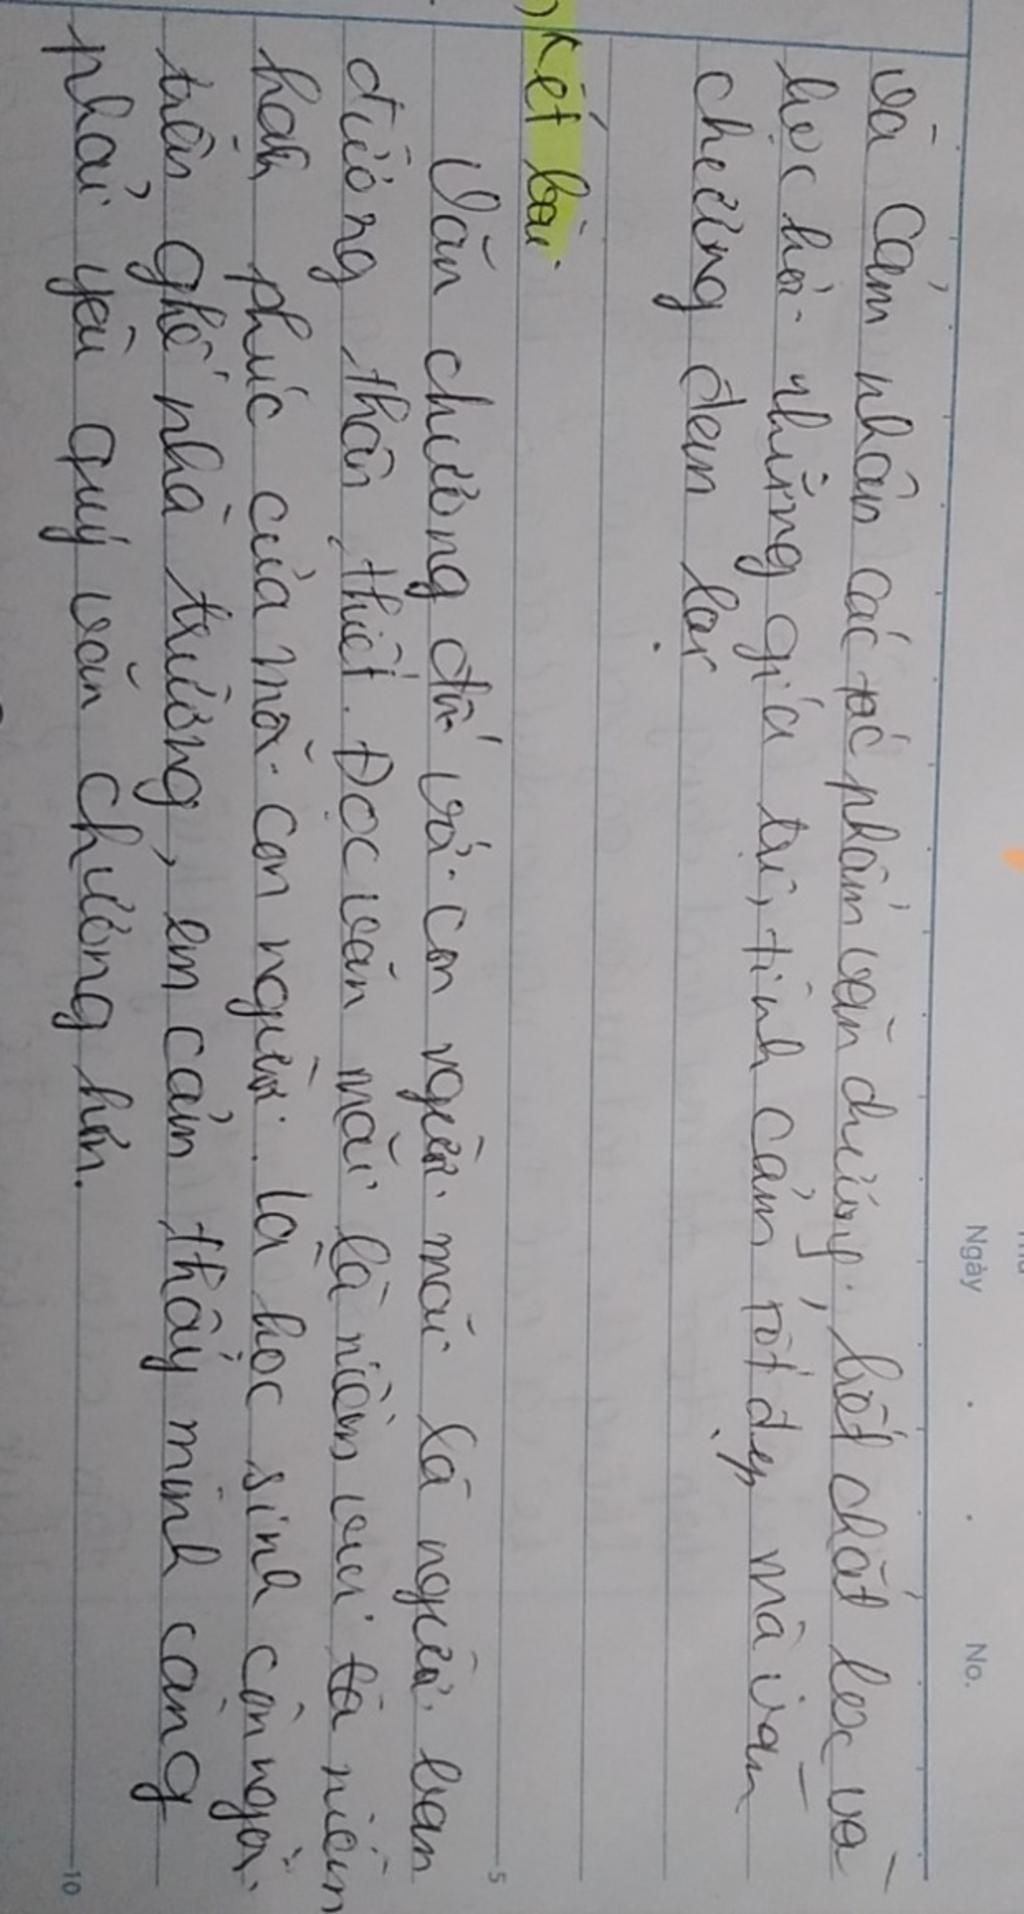 Ngày . . No.
và cảm nhận các tác phẩm văn chương, biết chắt lọc và
học hỏi những giá trị, tình cảm tốt đẹp mà văn
chương đem lại
Kết bài
Văn chương đối với con người mãi là người bạn
đường thân thiết. Đọc văn mãi là niềm vui là niềm
hạnh phúc của mỗi con người. Là học sinh còn ngồi
trên ghế nhà trường, em cảm thấy mình càng
phải yêu quý văn chương hơn.
5
10